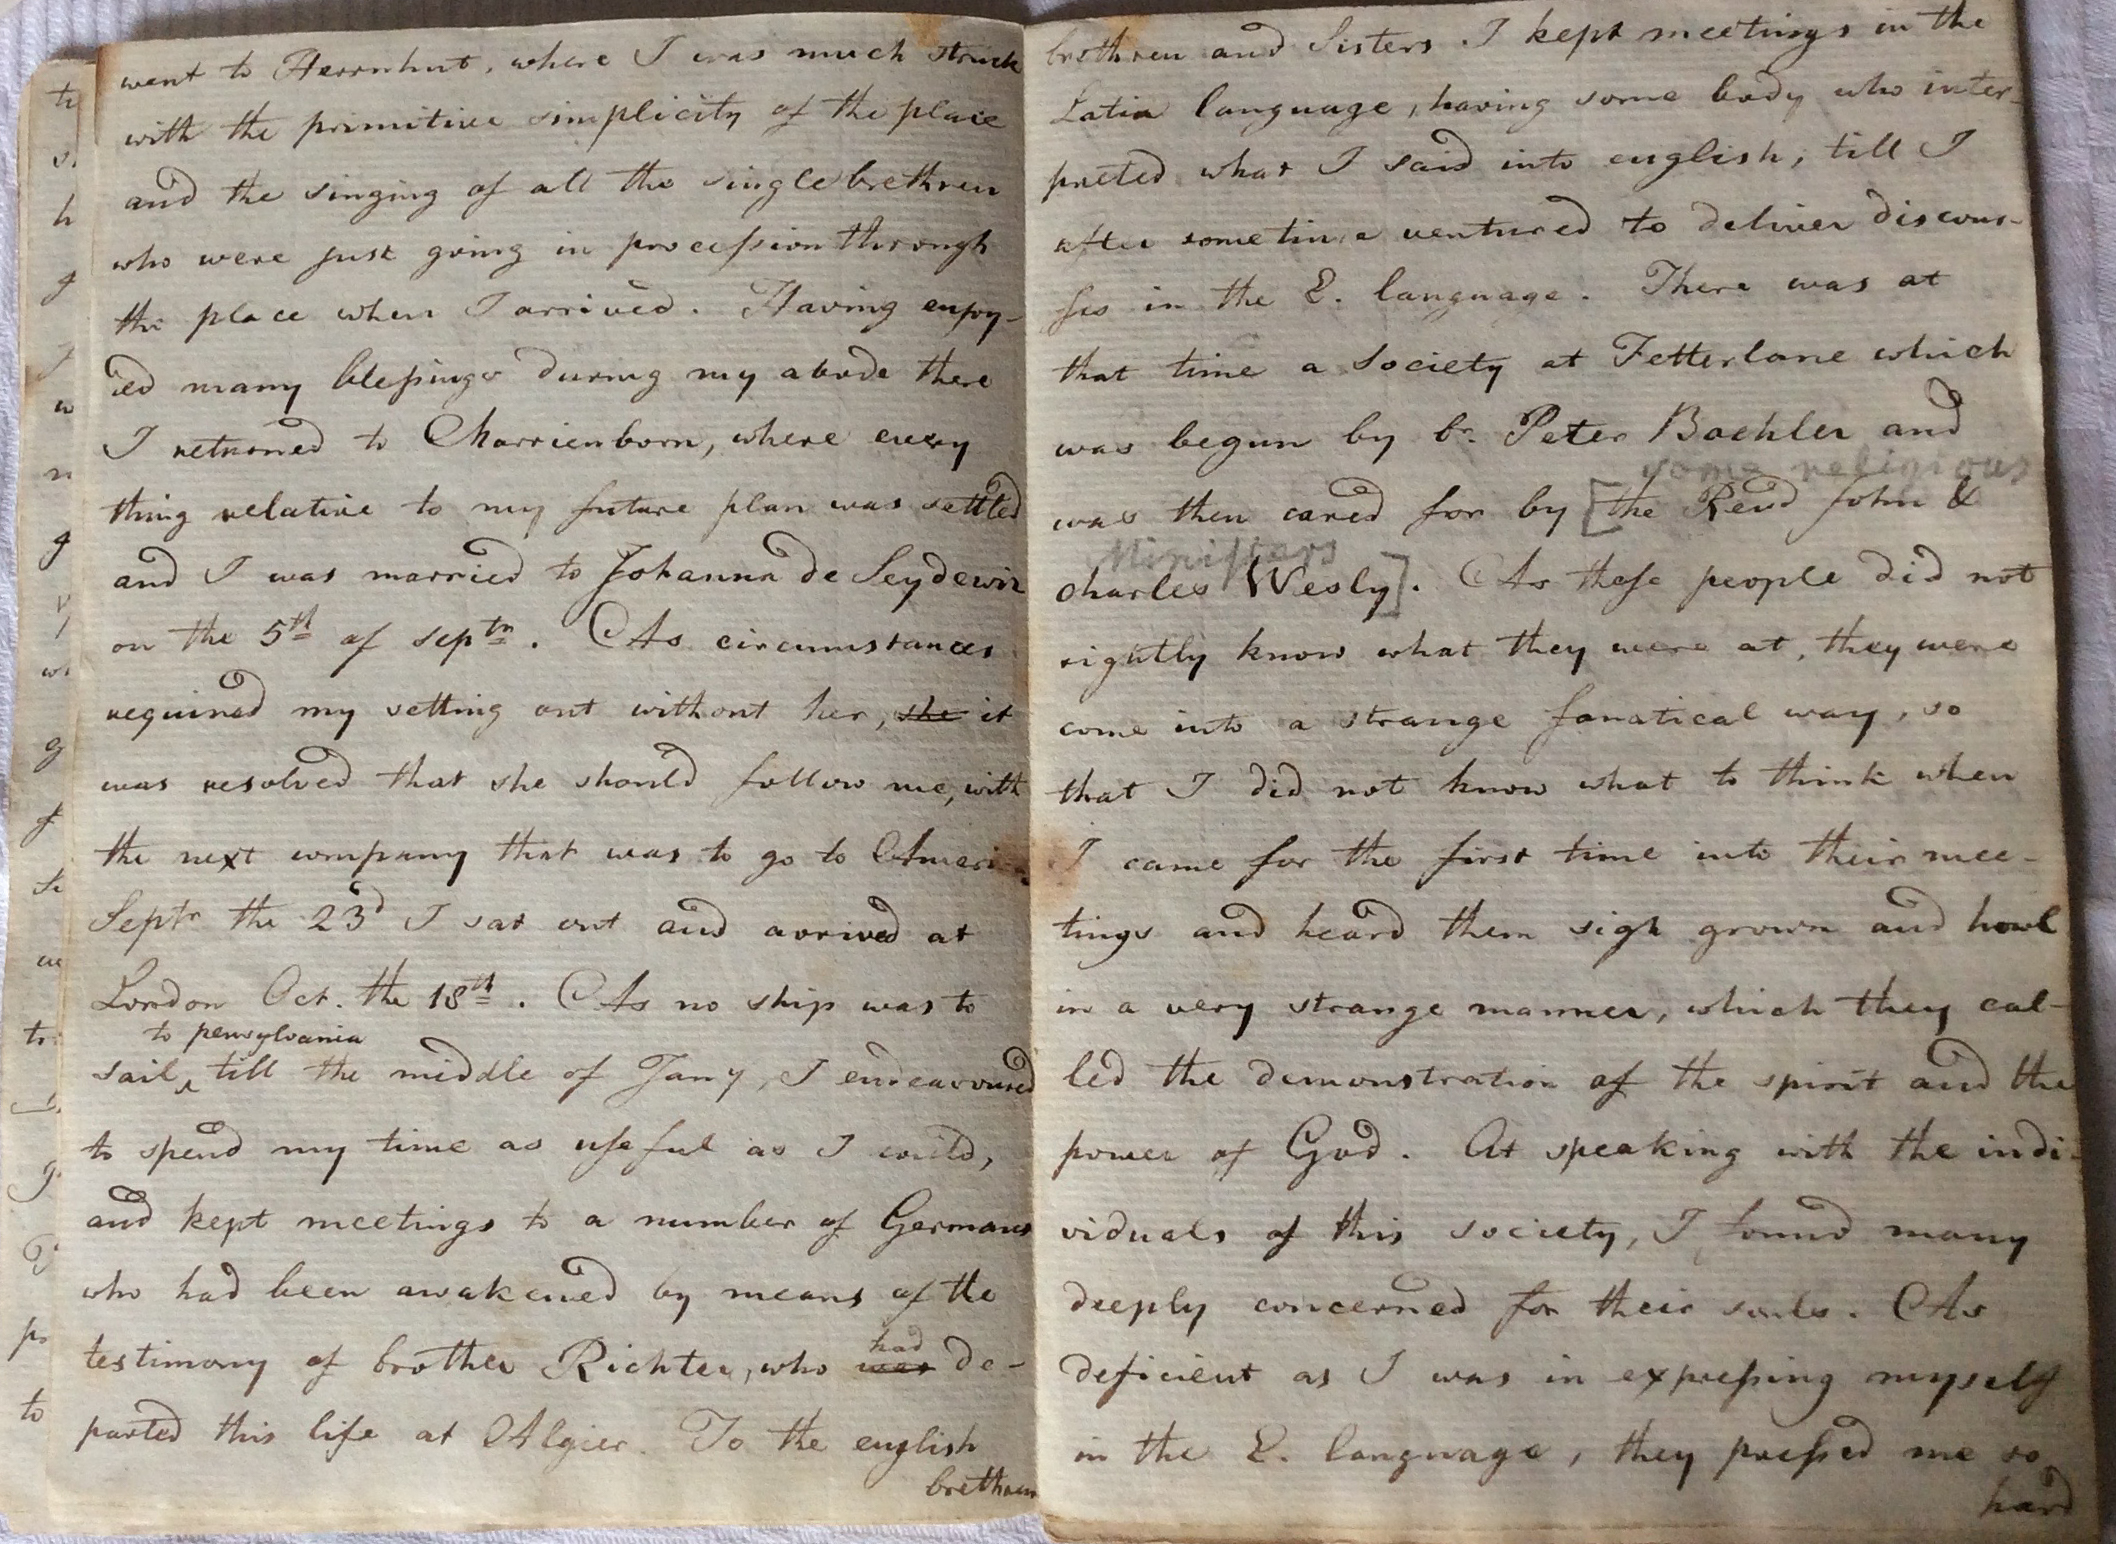 went to Herrnhut, where I was much struck
with the primitive simplicity of the place
and the singing of all the single brethren
who were just going in procession through
the place when I arrived. Having enjoy-
ed many blessings during my abode there
I returned to Marrienborn, where every
thing relative to my future plan was settled
and I was married to Johanna de Seydewiz
on the 5th of Septr. As circumstances
required my setting out without her, she it
was resolved that she should follow me, with
the next company that was to go to Ameri
Septr the 23d I sat out and arrived at
London Oct. the 18th. As no ship was to
to pensylvania
sail till the middle of Jany, I endeavoured
to spend my time as useful as I could,
and kept meetings to a number of Germans
who had been awakened by means of the
had
testimony of brother Richter, who was de-
parted this life at Algier. To the english
brethren
brethren and Sisters I kept meetings in the
Latin language, having some body who inter-
preted what I said into english, till I
after sometime ventured to deliver discour-
ses in the E. language. There was at
that time a society at Fetterlane which
was begun by br. Peter Boehler and
some religious
was then cared for by [the Revd John &
Ministers
Charles Wesly]. As these people did not
rightly know what they were at, they were
come into a strange fanatical way, so
that I did not know what to think when
I came for the first time into their mee-
tings and heard them sigh grown and howl
in a very strange manner, which they cal-
led the demonstration of the spirit and the
power of God. At speaking with the indi-
viduals of this society, I found many
deeply concerned for their souls. As
deficient as I was in expressing myself
in the E. language, they pressed me so
hard